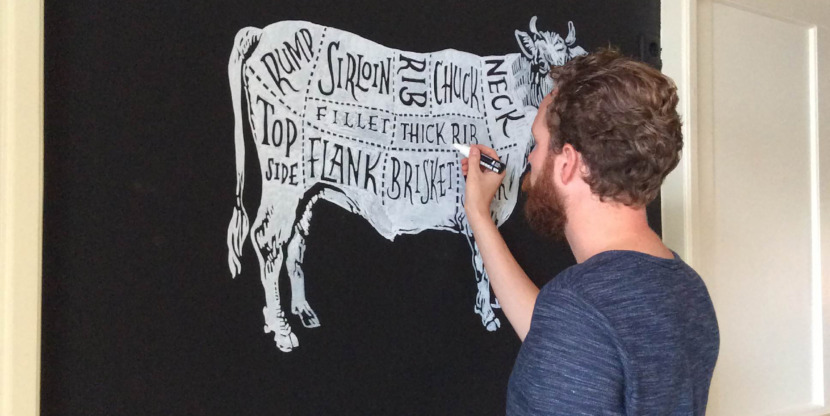 RUMP
SIRLOIN
RIB
CHUCK
NECK
TOP
SIDE
FILLET
THICK RIB
FLANK
BRISKET